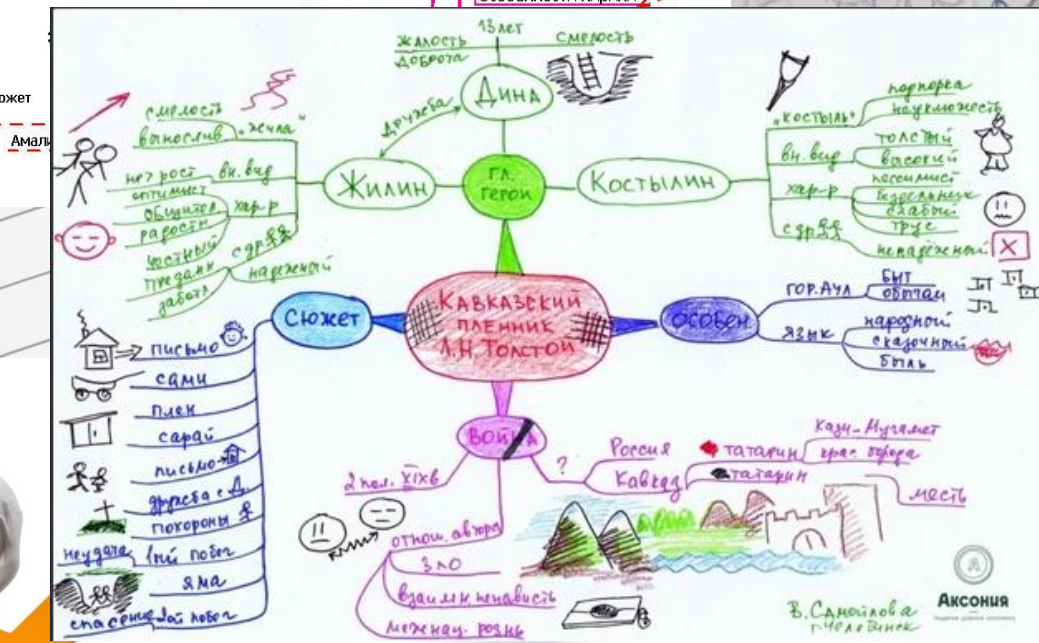 южет
Амали
13 лет
жалость
доброта
смелость
Дина
дружба
Жилин
гл.
герои
Костылин
смелость
вынослив
"жила"
вн. вид
оптимист
общител
хар-р
радостн
преданн
надежный
забота
"костыль"
подпорка
неуклюжесть
вн. вид
толстый
высокий
хар-р
пессимист
бездельник
слабый
трус
ненадёжный
Кавказский
пленник
Л.Н. Толстой
Сюжет
письмо
сами
плен
сарай
письмо
дружба с Д.
похороны
неудача
1ый побег
яма
спасение
2ой побег
особен
гор. аул
быт
обычаи
язык
народный
сказочный
быль
война
2 пол. XIX в
?
Россия
Кавказ
татарин
Кази-Мугамет
крас. борода
татарин
месть
отнош. автора
зло
взаимн. ненависть
межнац. рознь
В. Самойлова
г. Челябинск
Аксония